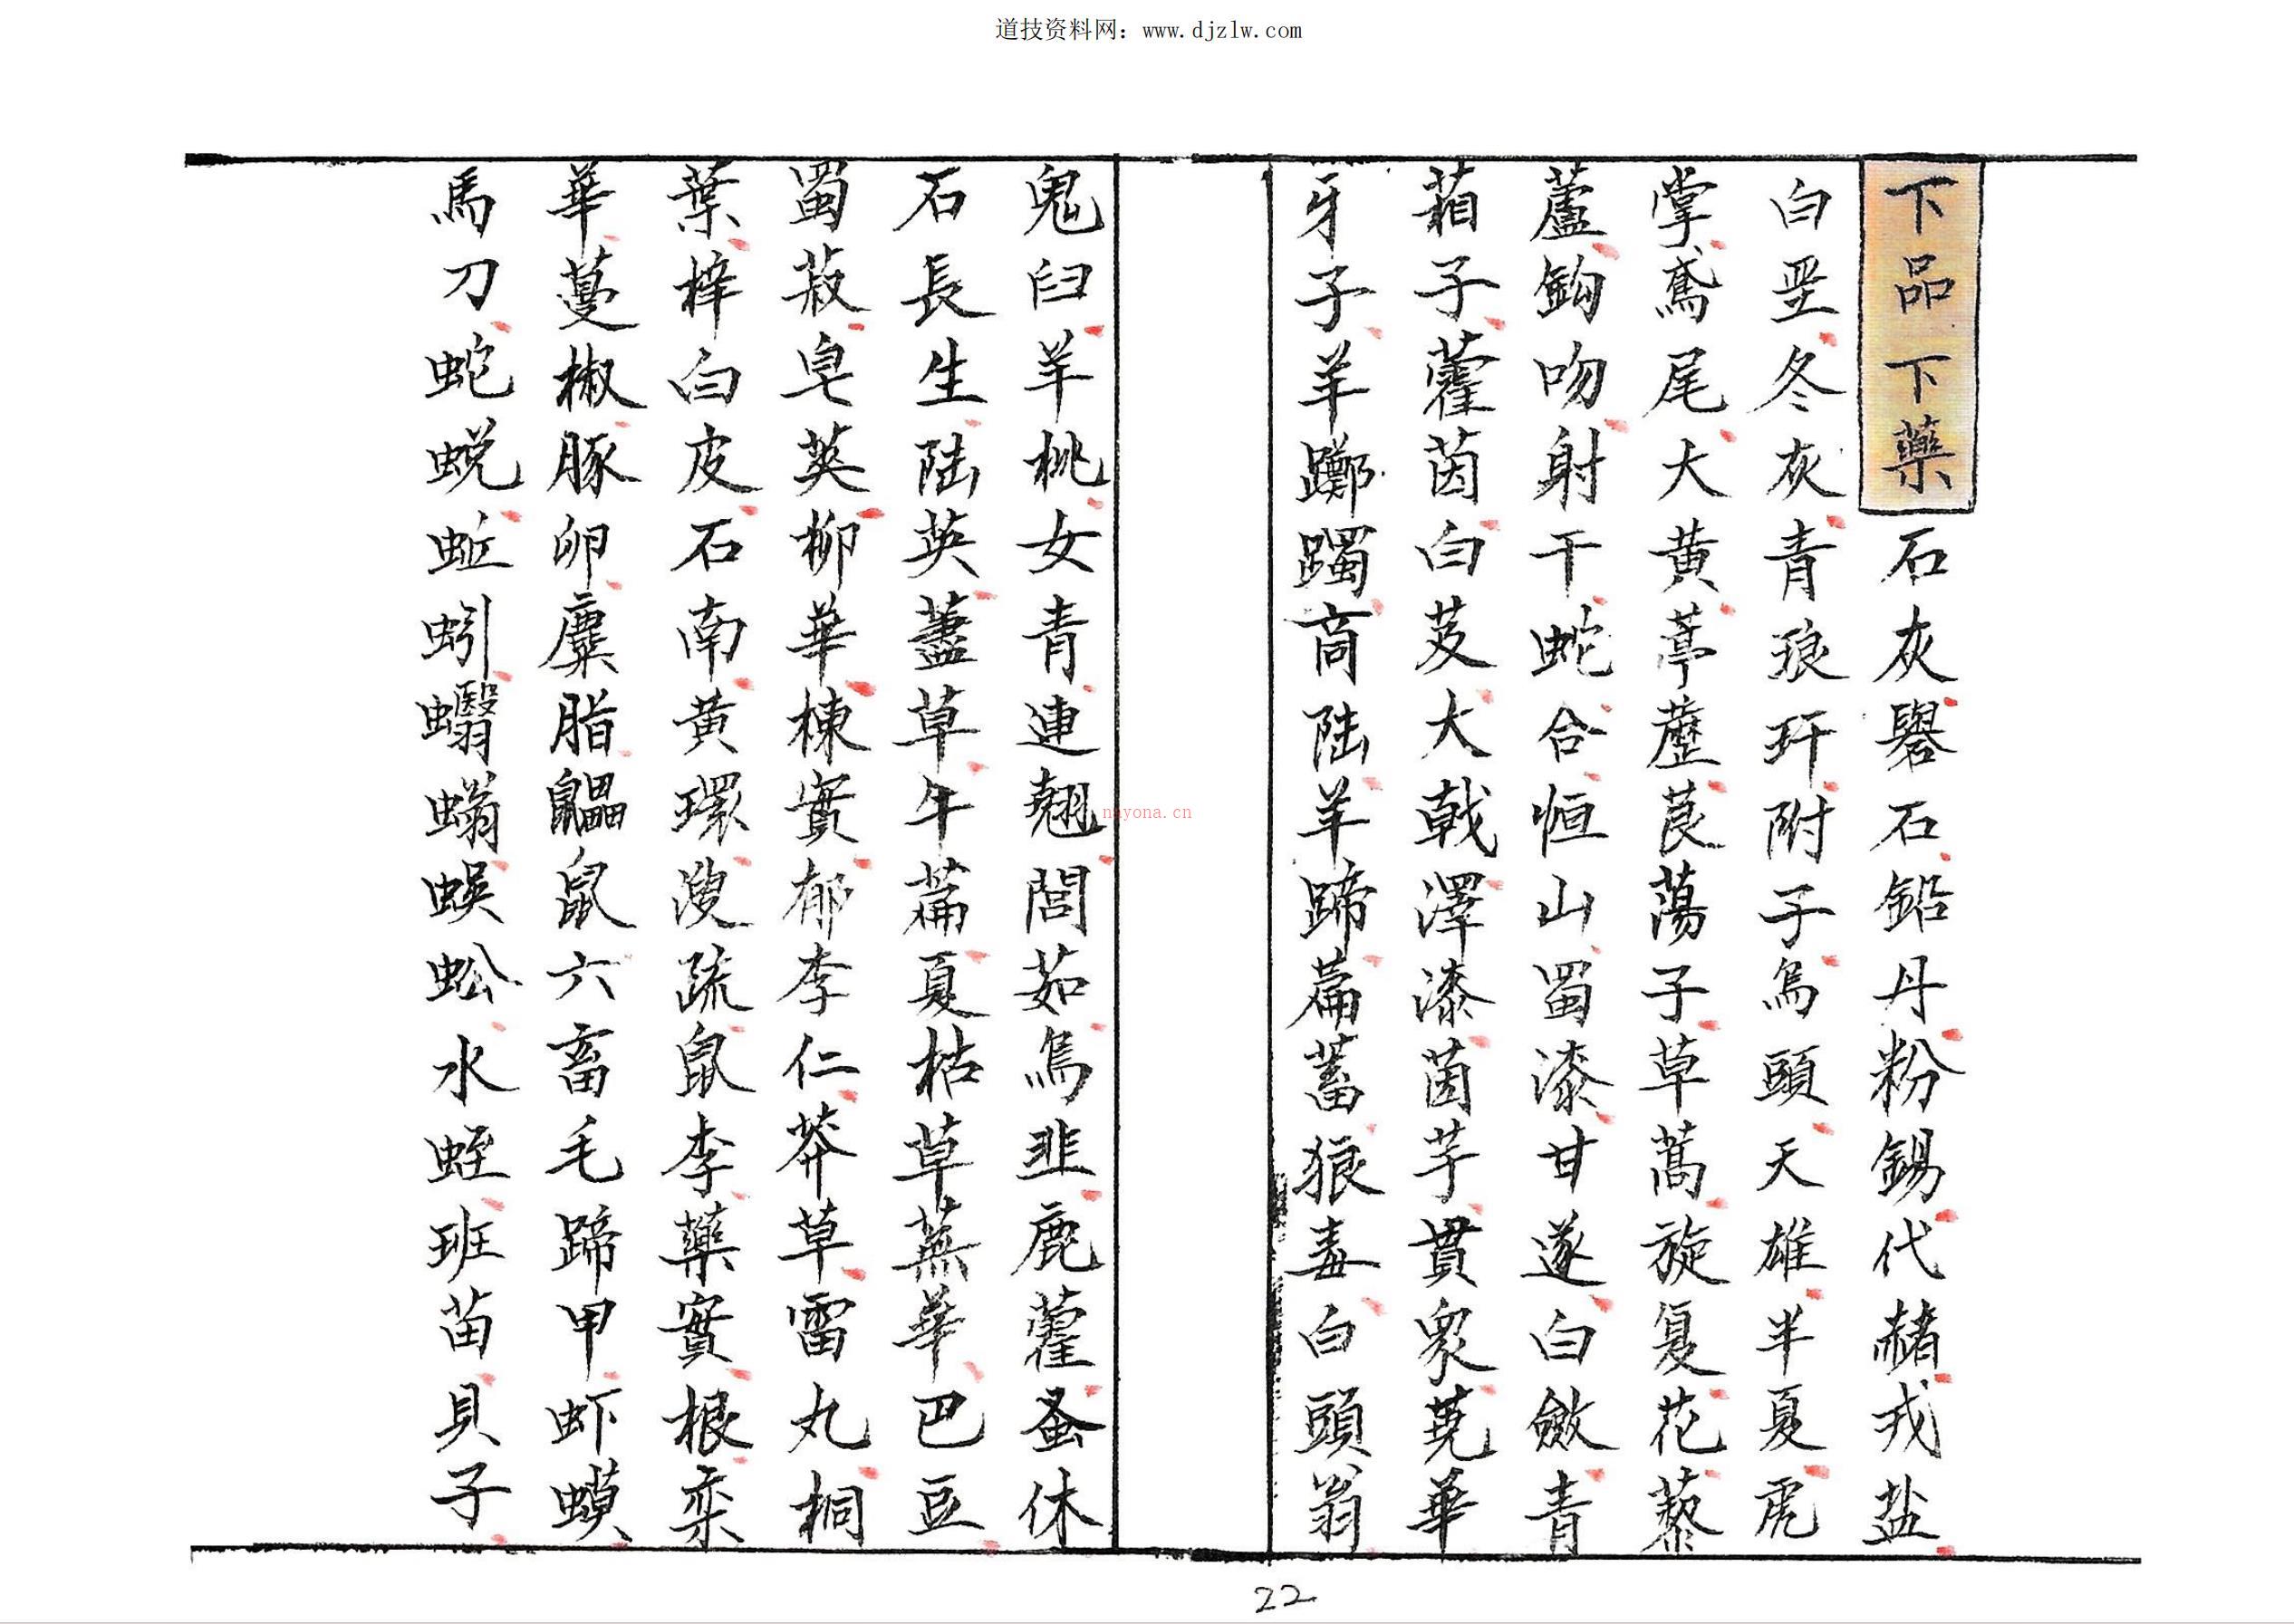 道技资料网：www.djzlw.com
下品下藥石灰礜石鉛丹粉錫代赭戎盐
白垩冬灰青琅玕附子烏頭天雄半夏虎
掌鳶尾大黄葶藶莨蕩子草蒿旋复花藜
蘆鈎吻射干蛇合恒山蜀漆甘遂白斂青
葙子藿茵白芨大戟澤漆茵芋貫衆蕘華
牙子羊躑躅商陆羊蹄萹蓄狼毒白頭翁
鬼臼羊桃女青連翹閭茹烏韭鹿藿蚤休
石長生陆英藎草午萹夏枯草蕪華巴豆
蜀菽皂荚柳華楝實郁李仁莽草雷丸桐
葉梓白皮石南黄環溲疏鼠李藥實根栾
華蔓椒豚卵麋脂鼺鼠六畜毛蹄甲虾蟆
馬刀蛇蜕蚯蚓蠮螉蜈蚣水蛭班苗貝子
nayona.cn
22